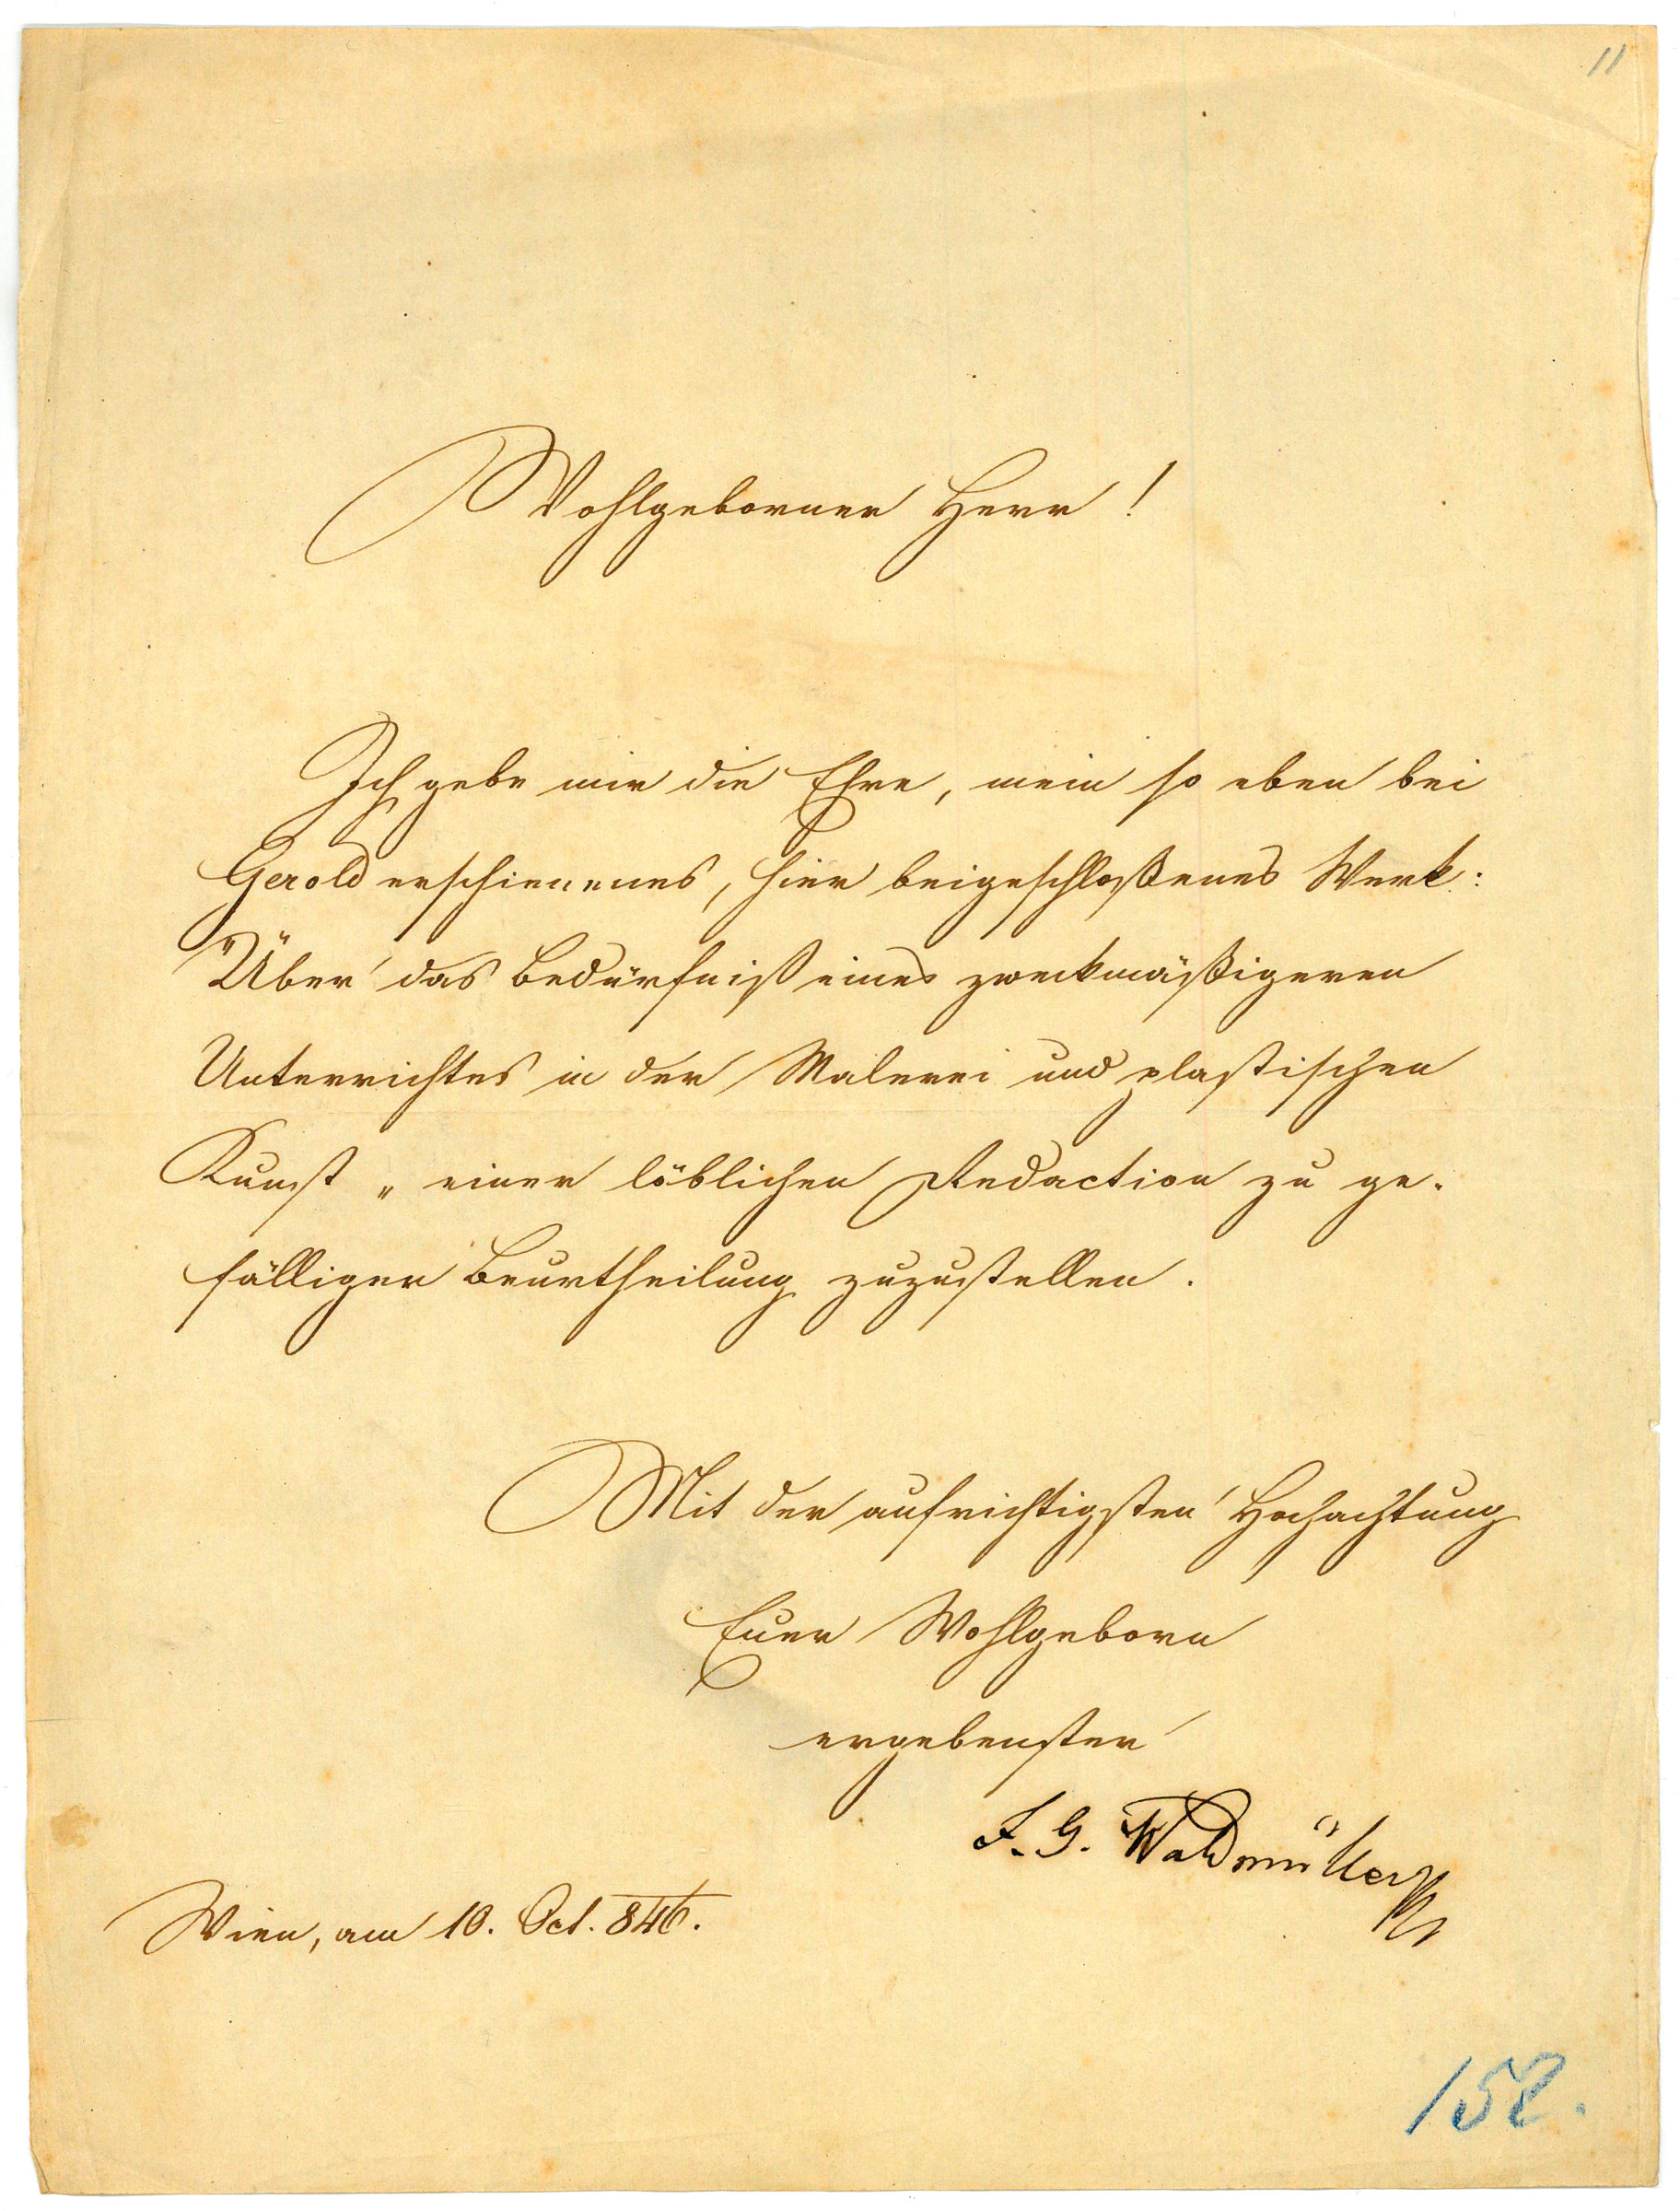 11
Wohlgeborner Herr!
Ich gebe mir die Ehre, mein so eben bei
Gerold erschienenes, hier beigeschloßenes Werk:
"Über das Bedürfniß eines zweckmäßigeren
Unterrichtes in der Malerei und plastischen
Kunst" einer löblichen Redaction zu ge-
fälliger Beurtheilung zuzustellen.
Mit der aufrichtigsten Hochachtung
Euer Wohlgeborn
ergebenster
F. G. Waldmüller
Wien, am 10. Oct. 846.
152.